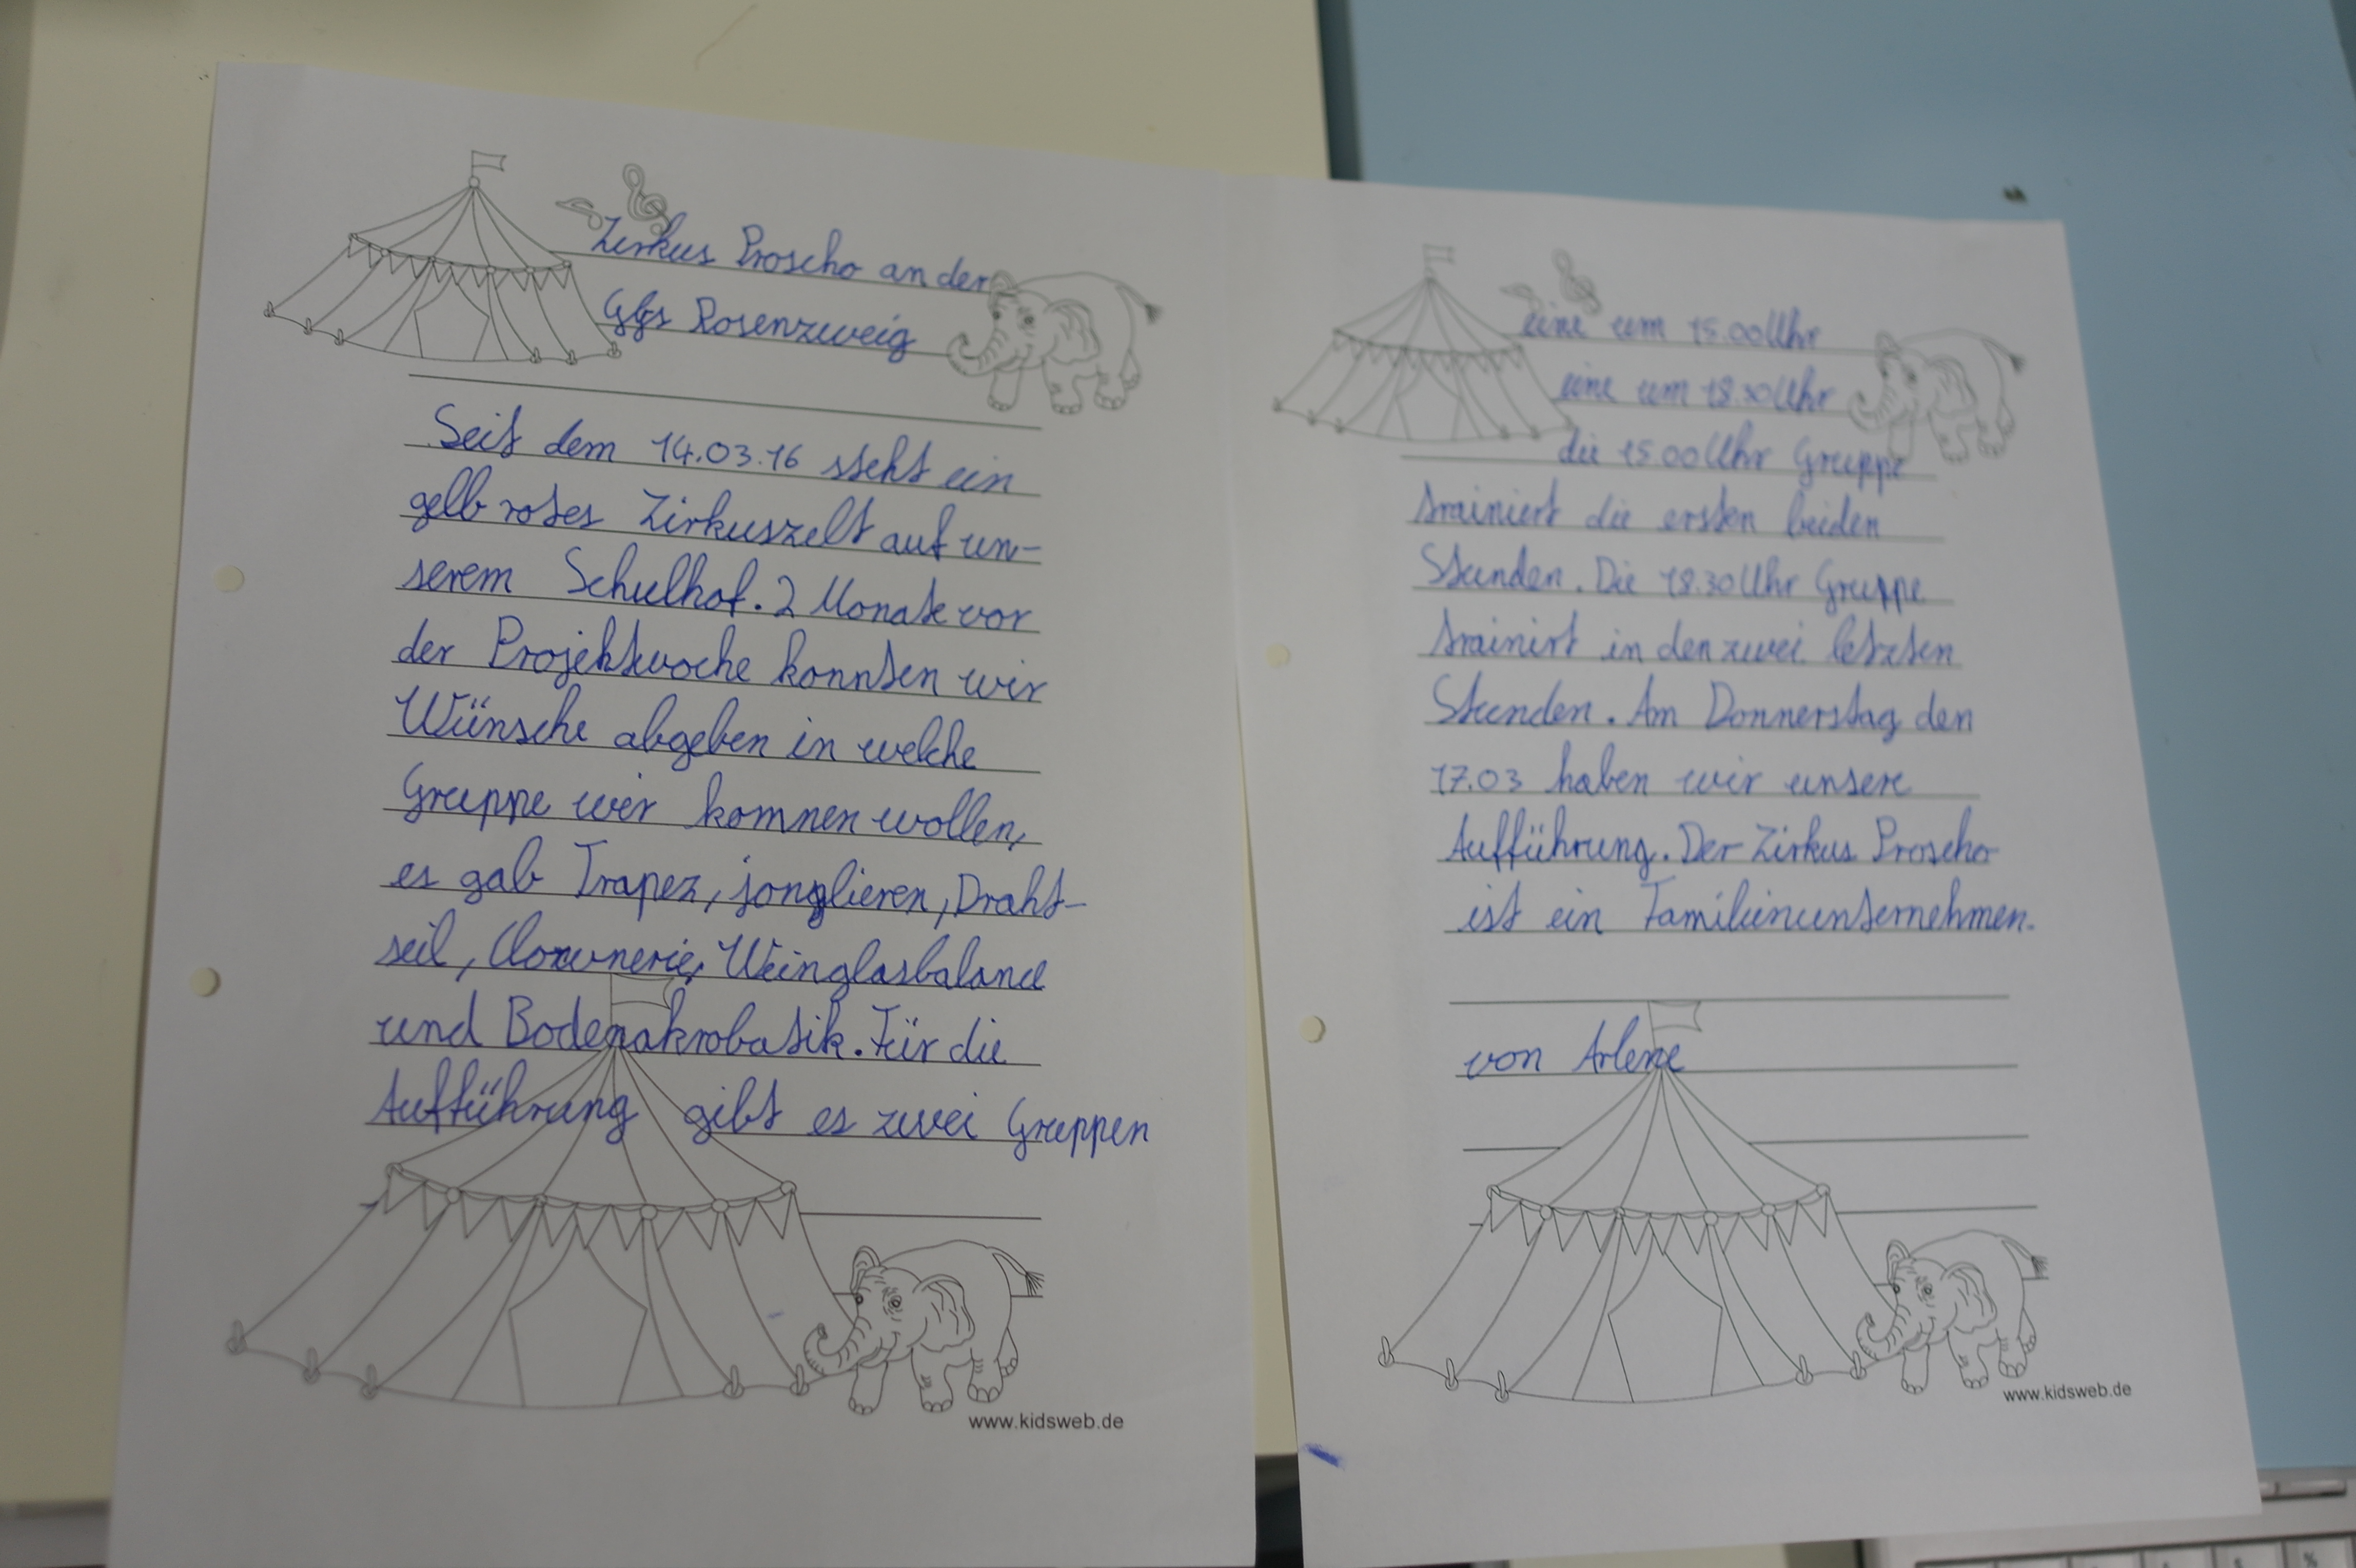 Zirkus Proscho an der
Ggs Rosenzweig
Seit dem 14.03.16 steht ein
gelb rotes Zirkuszelt auf un-
serem Schulhof. 2 Monate vor
der Projektwoche konnten wir
Wünsche abgeben in welche
Gruppe wir kommen wollen,
es gab Trapez, jonglieren, Draht-
seil, Clownerie, Weinglasbalance
und Bodenakrobatik. Für die
Aufführung gibt es zwei Gruppen
www.kidsweb.de
eine um 15.00 Uhr
eine um 18.30 Uhr
die 15.00 Uhr Gruppe
trainiert die ersten beiden
Stunden. Die 18.30 Uhr Gruppe
trainirt in den zwei letzten
Stunden. Am Donnerstag den
17.03 haben wir unsere
Aufführung. Der Zirkus Proscho
ist ein Familienunternehmen.
von Arlene
www.kidsweb.de